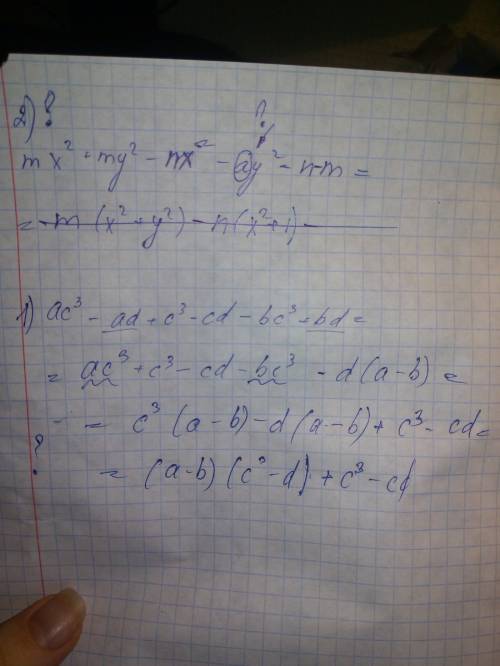 2) ?
?
mx² + my² - nx² - ay² - n - m =
= m (x² + y²) - n (x² + 1) -
1) ac³ - ad + c³ - cd - bc³ + bd =
= ac³ + c³ - cd - bc³ - d (a - b) =
= c³ (a - b) - d (a - b) + c³ - cd =
? = (a - b) (c³ - d) + c³ - cd